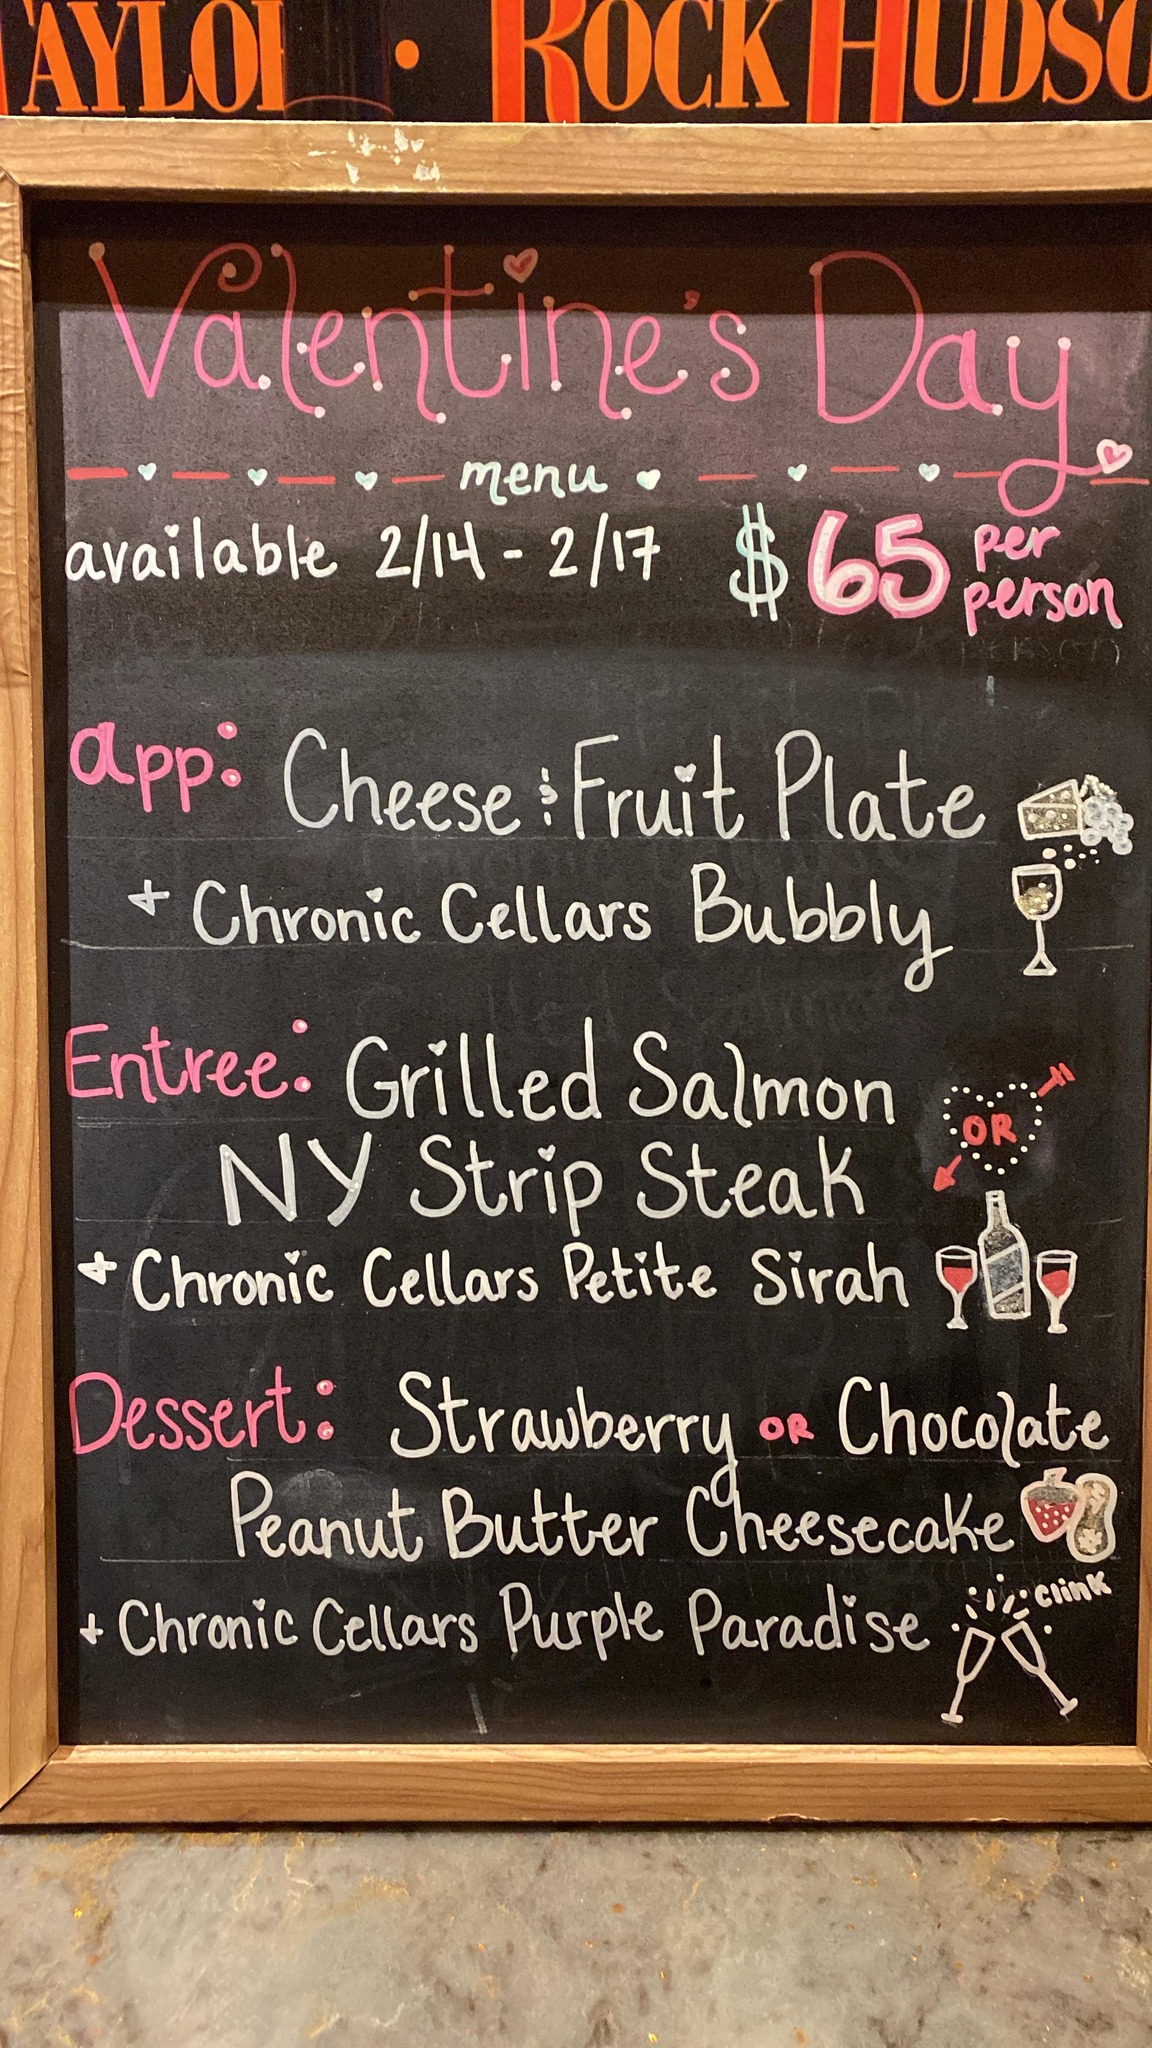 TAYLOR • ROCK HUDSO
Valentine's Day
menu
available 2/14 - 2/17 $65 per person
app: Cheese & Fruit Plate
+ Chronic Cellars Bubbly
Entree: Grilled Salmon
OR
NY Strip Steak
+ Chronic Cellars Petite Sirah
Dessert: Strawberry OR Chocolate
Peanut Butter Cheesecake
clink
+ Chronic Cellars Purple Paradise